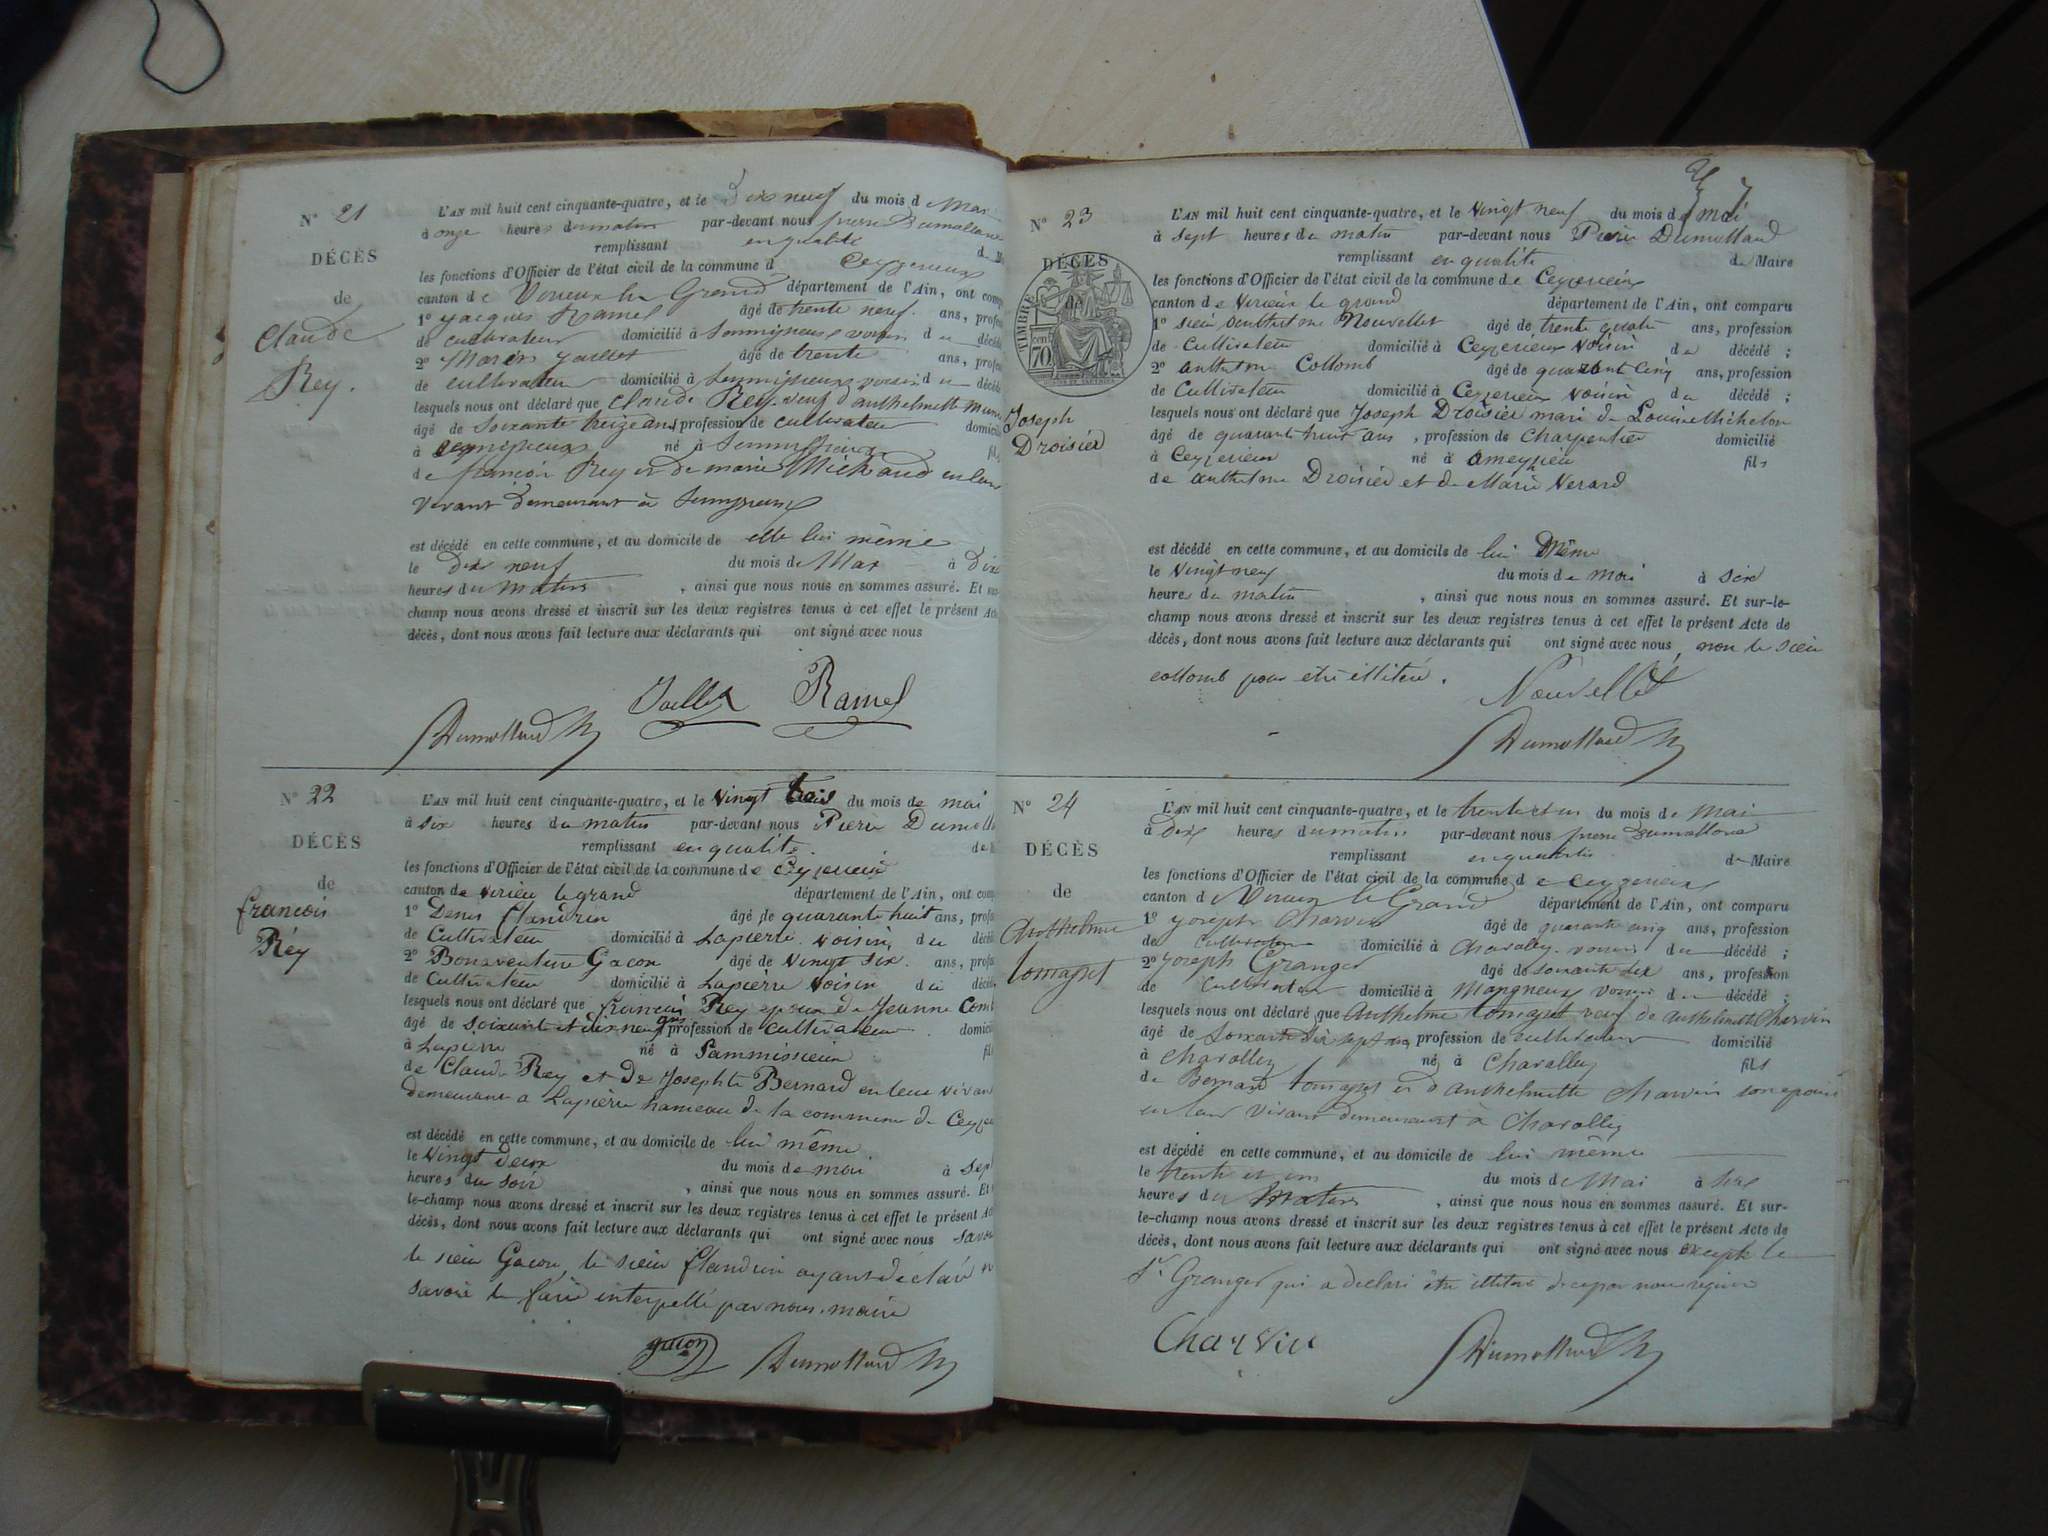 N° 21
DÉCÈS
de
Claude
Rey.
L'AN mil huit cent cinquante-quatre, et le Dix neuf du mois d Mai
à onze heures du matin par-devant nous pierre Dumollard
remplissant en qualité d
les fonctions d'Officier de l'état civil de la commune d Ceyzerieux
canton de Virieux le Grand département de l'Ain, ont comp
1° Jacques Ramel âgé de trente neuf ans, profes
de cultivateur domicilié à voisin du décédé
2° Marin Jaillet âgé de trente ans, profes
de cultivateur domicilié à voisin du décédé
lesquels nous ont déclaré que Claude Rey veuf d'anthelmette
âgé de soixante treize ans profession de cultivateur domicilié
à né à fils
de françois Rey et de marie Michaud en leur
vivant demeurant à
est décédé en cette commune, et au domicile de lui même
le Dix neuf du mois de Mai à Dix
heures du matin , ainsi que nous nous en sommes assuré. Et sur-
champ nous avons dressé et inscrit sur les deux registres tenus à cet effet le présent Acte
décès, dont nous avons fait lecture aux déclarants qui ont signé avec nous
Jaillet Ramel
Dumollard M
N° 22
DÉCÈS
de
francois
Réy
L'AN mil huit cent cinquante-quatre, et le Vingt trois du mois de mai
à six heures du matin par-devant nous Pierre Dumoll
remplissant en qualité de
les fonctions d'Officier de l'état civil de la commune de Ceyzerieux
canton de virieu legrand département de l'Ain, ont com
1° Denis flandrin âgé de quarante huit ans, profes
de Cultivateur domicilié à Lapierre voisin du décédé
2° Bonaventure Gacon âgé de Vingt six ans, profes
de Cultivateur domicilié à Lapierre voisin du décédé
lesquels nous ont déclaré que francois Rey epoux de Jeanne Comb
âgé de soixante et dix neuf ans profession de cultivateur domicilié
à Lapierre né à fils
de Claude Rey et de Josephte Bernard en leur vivan
demeurant a Lapierre hameau de la commune de Ceyze
est décédé en cette commune, et au domicile de lui même
le Vingt deux du mois de mai à sept
heures du soir , ainsi que nous nous en sommes assuré. Et
le-champ nous avons dressé et inscrit sur les deux registres tenus à cet effet le présent Ac
décès, dont nous avons fait lecture aux déclarants qui ont signé avec nous savoir
le sieur Gacon, le sieur flandrin ayant déclaré ne
savoir le faire interpellé par nous maire
gacon Dumollard M
7
N° 23
DÉCÈS
de
TIMBRE
70
Joseph
Droisier
L'AN mil huit cent cinquante-quatre, et le Vingt neuf du mois de mai
à sept heures du matin par-devant nous Pierre Dumollard
remplissant en qualité de Maire
les fonctions d'Officier de l'état civil de la commune de Ceyzerieux
canton de Virieu le grand département de l'Ain, ont comparu
1° sieur anthelme Nouvellet âgé de trente quatre ans, profession
de Cultivateur domicilié à Ceyzerieux voisin du décédé ;
2° anthelme Collomb âgé de quarante cinq ans, profession
de Cultivateur domicilié à Ceyzerieux voisin du décédé ;
lesquels nous ont déclaré que Joseph Droisier mari de Louise
âgé de quarante huit ans , profession de Charpentier domicilié
à Ceyzerieux né à ameyzieu fils
de anthelme Droisier et de Marie Verard
est décédé en cette commune, et au domicile de lui Même
le Vingt neuf du mois de mai à six
heures du matin , ainsi que nous nous en sommes assuré. Et sur-le-
champ nous avons dressé et inscrit sur les deux registres tenus à cet effet le présent Acte de
décès, dont nous avons fait lecture aux déclarants qui ont signé avec nous, non le sieur
collomb pour etre illiteré.
Nouvellet
Dumollard M
N° 24
DÉCÈS
de
Anthelme
tomagnet
L'AN mil huit cent cinquante-quatre, et le trente et un du mois de Mai
à Dix heures du matin par-devant nous pierre Dumollard
remplissant en qualité de Maire
les fonctions d'Officier de l'état civil de la commune de Ceyzerieux
canton d Virieux le Grand département de l'Ain, ont comparu
1° Joseph Charvin âgé de quarante cinq ans, profession
de Cultivateur domicilié à Charolley voisin du décédé ;
2° Joseph Granger âgé de soixante dix ans, profession
de Cultivateur domicilié à voisin du décédé ;
lesquels nous ont déclaré que Anthelme tomagnet veuf de anthelmette Charvin
âgé de soixante dix sept ans profession de cultivateur domicilié
à Charolley né à Charolley fils
de Bernard tomagnet et d'anthelmette Charvin son epouse
en leur vivant demeurant à Charolley
est décédé en cette commune, et au domicile de lui même
le trente et un du mois de Mai à
heures du Matin , ainsi que nous nous en sommes assuré. Et sur-
le-champ nous avons dressé et inscrit sur les deux registres tenus à cet effet le présent Acte de
décès, dont nous avons fait lecture aux déclarants qui ont signé avec nous excepté le
Sr. Granger qui a déclaré être illiteré de ce par nous requis
Charvin
Dumollard M